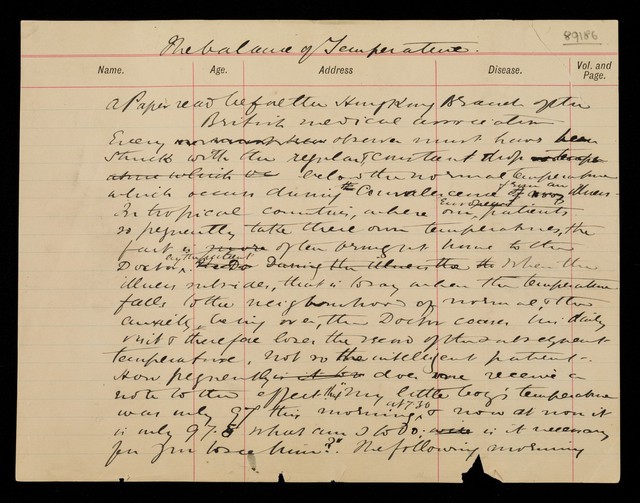 89186
The balance of Temperature.
Name. Age. Address Disease. Vol. and Page.
a Paper read before the Hong Kong Branch of the
British medical association
Every observer must have been
struck with the regular & constant drop
which below the normal temperature
which occurs during the Convalescence from an illness.
In tropical countries, where our European patients
so frequently take their own temperatures, the
fact is often brought home to the
Doctor by the patient. during the illness the when the
illness subsides, that is to say when the temperature
falls to the neighbourhood of normal, & the
anxiety being over, the Doctor ceases his daily
visit & therefore loses the record of the subsequent
temperature, not so the intelligent patient.
How frequently does one receive a
note to the effect this "my little boy's temperature
was only 97 this morning at 7.30 & now at noon it
is only 97.8 what am I to do; is it necessary
for you to see him?" The following morning